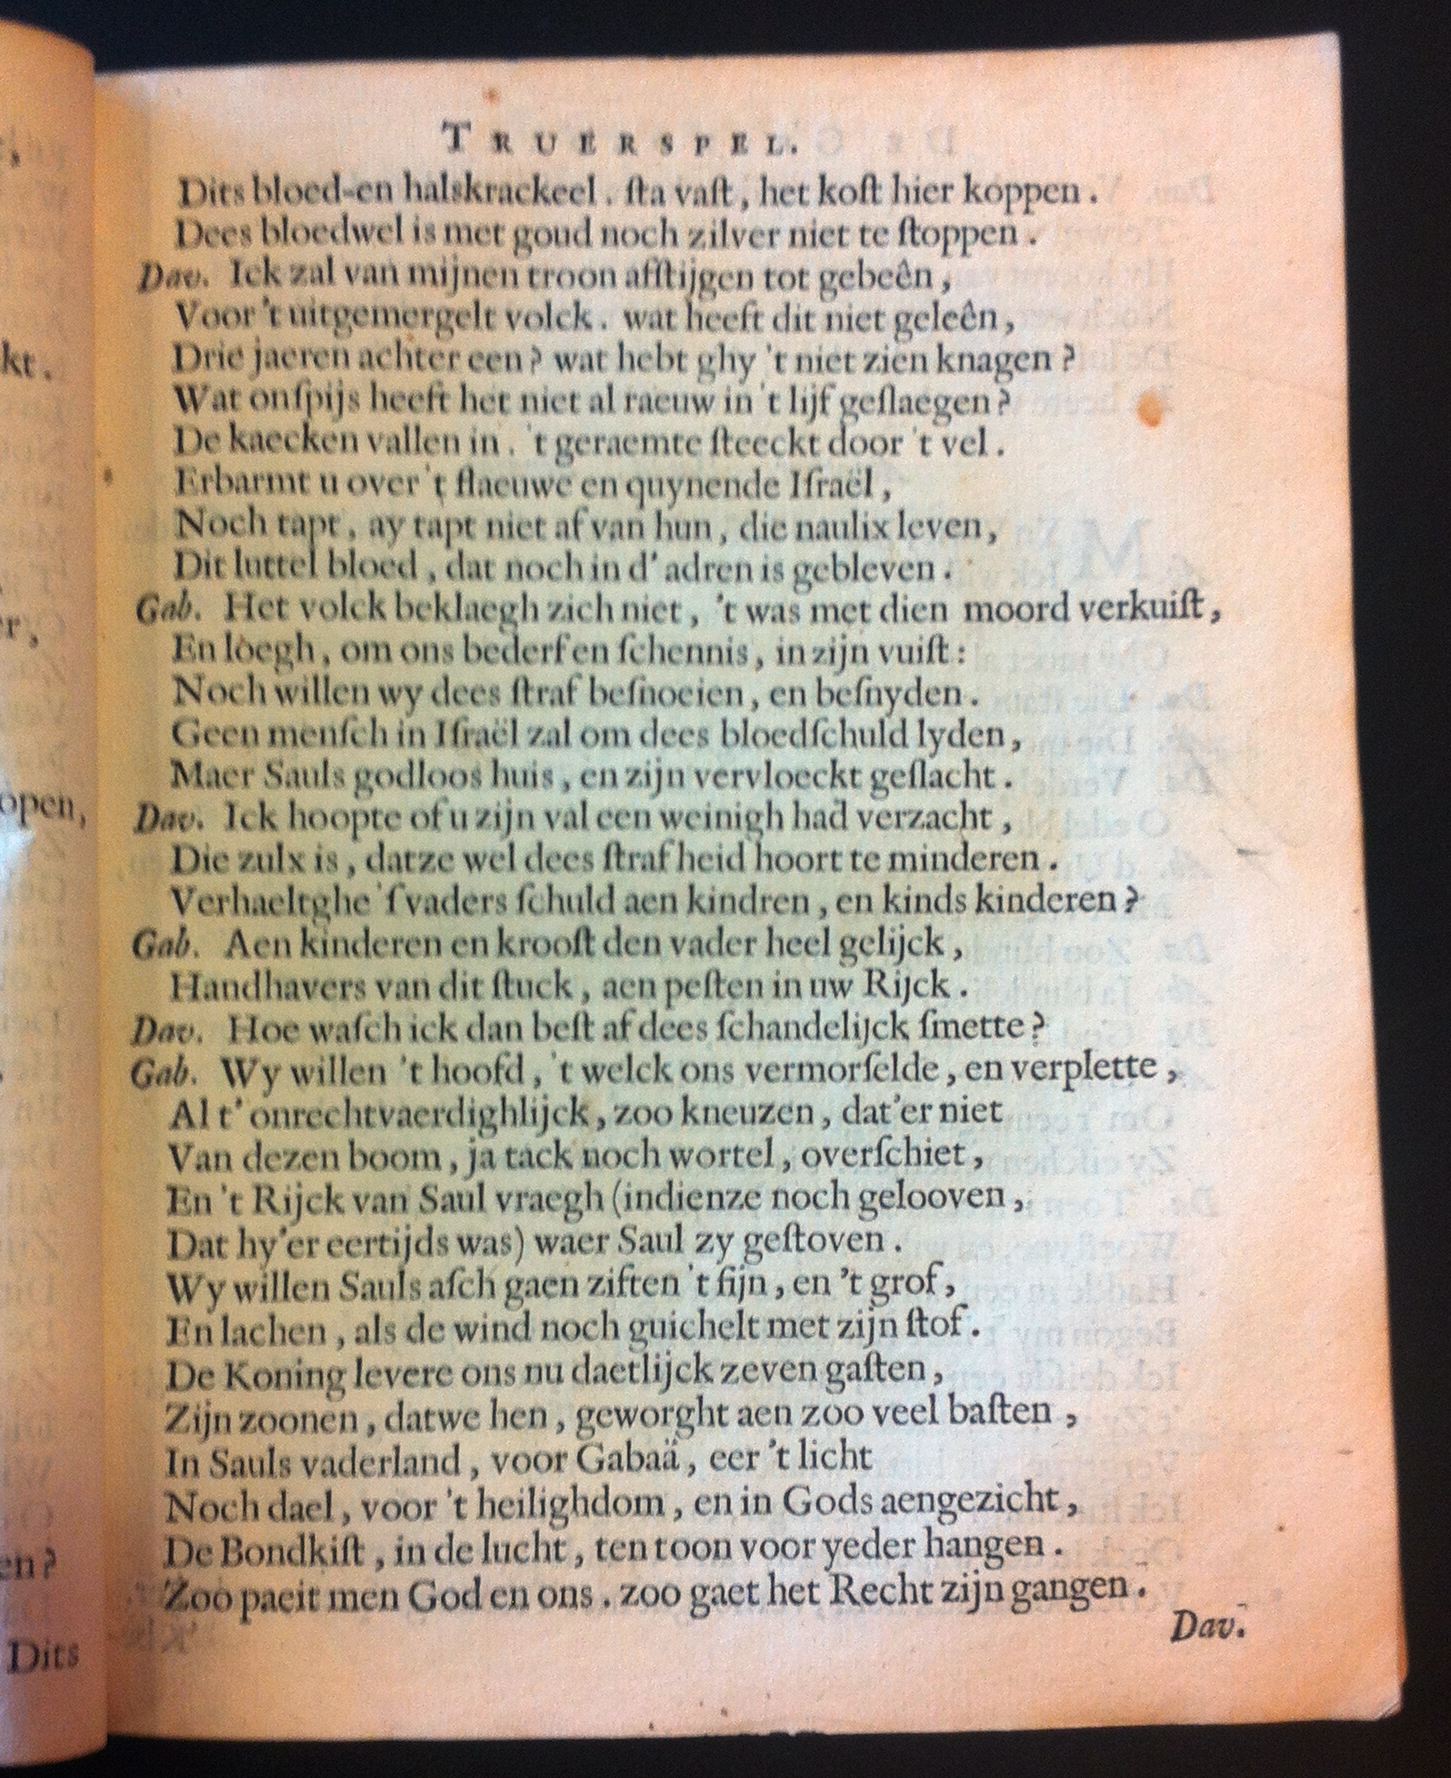 TRUERSPEL.
Dits bloed-en halskrackeel. ſta vaſt, het koſt hier koppen.
Dees bloedwel is met goud noch zilver niet te ſtoppen.
Dav. Ick zal van mijnen troon afſtijgen tot gebeên,
Voor 't uitgemergelt volck. wat heeft dit niet geleên,
Drie jaeren achter een? wat hebt ghy 't niet zien knagen?
Wat onſpijs heeft het niet al raeuw in 't lijf geſlaegen?
De kaecken vallen in. 't geraemte ſteeckt door 't vel.
Erbarmt u over 't flaeuwe en quynende Iſraël,
Noch tapt, ay tapt niet af van hun, die naulix leven,
Dit luttel bloed, dat noch in d' adren is gebleven.
Gab. Het volck beklaegh zich niet, 't was met dien moord verkuiſt,
En loegh, om ons bederf en ſchennis, in zijn vuiſt:
Noch willen wy dees ſtraf beſnoeien, en beſnyden.
Geen menſch in Iſraël zal om dees bloedſchuld lyden,
Maer Sauls godloos huis, en zijn vervloeckt geſlacht.
Dav. Ick hoopte of u zijn val een weinigh had verzacht,
Die zulx is, datze wel dees ſtrafheid hoort te minderen.
Verhaeltghe 'ſvaders ſchuld aen kindren, en kinds kinderen?
Gab. Aen kinderen en krooſt den vader heel gelijck,
Handhavers van dit ſtuck, aen peſten in uw Rijck.
Dav. Hoe waſch ick dan beſt af dees ſchandelijck ſmette?
Gab. Wy willen 't hoofd, 't welck ons vermorſelde, en verplette,
Al t' onrechtvaerdighlijck, zoo kneuzen, dat'er niet
Van dezen boom, ja tack noch wortel, overſchiet,
En 't Rijck van Saul vraegh (indienze noch gelooven,
Dat hy'er eertijds was) waer Saul zy geſtoven.
Wy willen Sauls aſch gaen ziften 't fijn, en 't grof,
En lachen, als de wind noch guichelt met zijn ſtof.
De Koning levere ons nu daetlijck zeven gaſten,
Zijn zoonen, datwe hen, geworght aen zoo veel baſten,
In Sauls vaderland, voor Gabaä, eer 't licht
Noch dael, voor 't heilighdom, en in Gods aengezicht,
De Bondkiſt, in de lucht, ten toon voor yeder hangen.
Zoo paeit men God en ons. zoo gaet het Recht zijn gangen.
Dav.
kt.
open,
en?
Dits